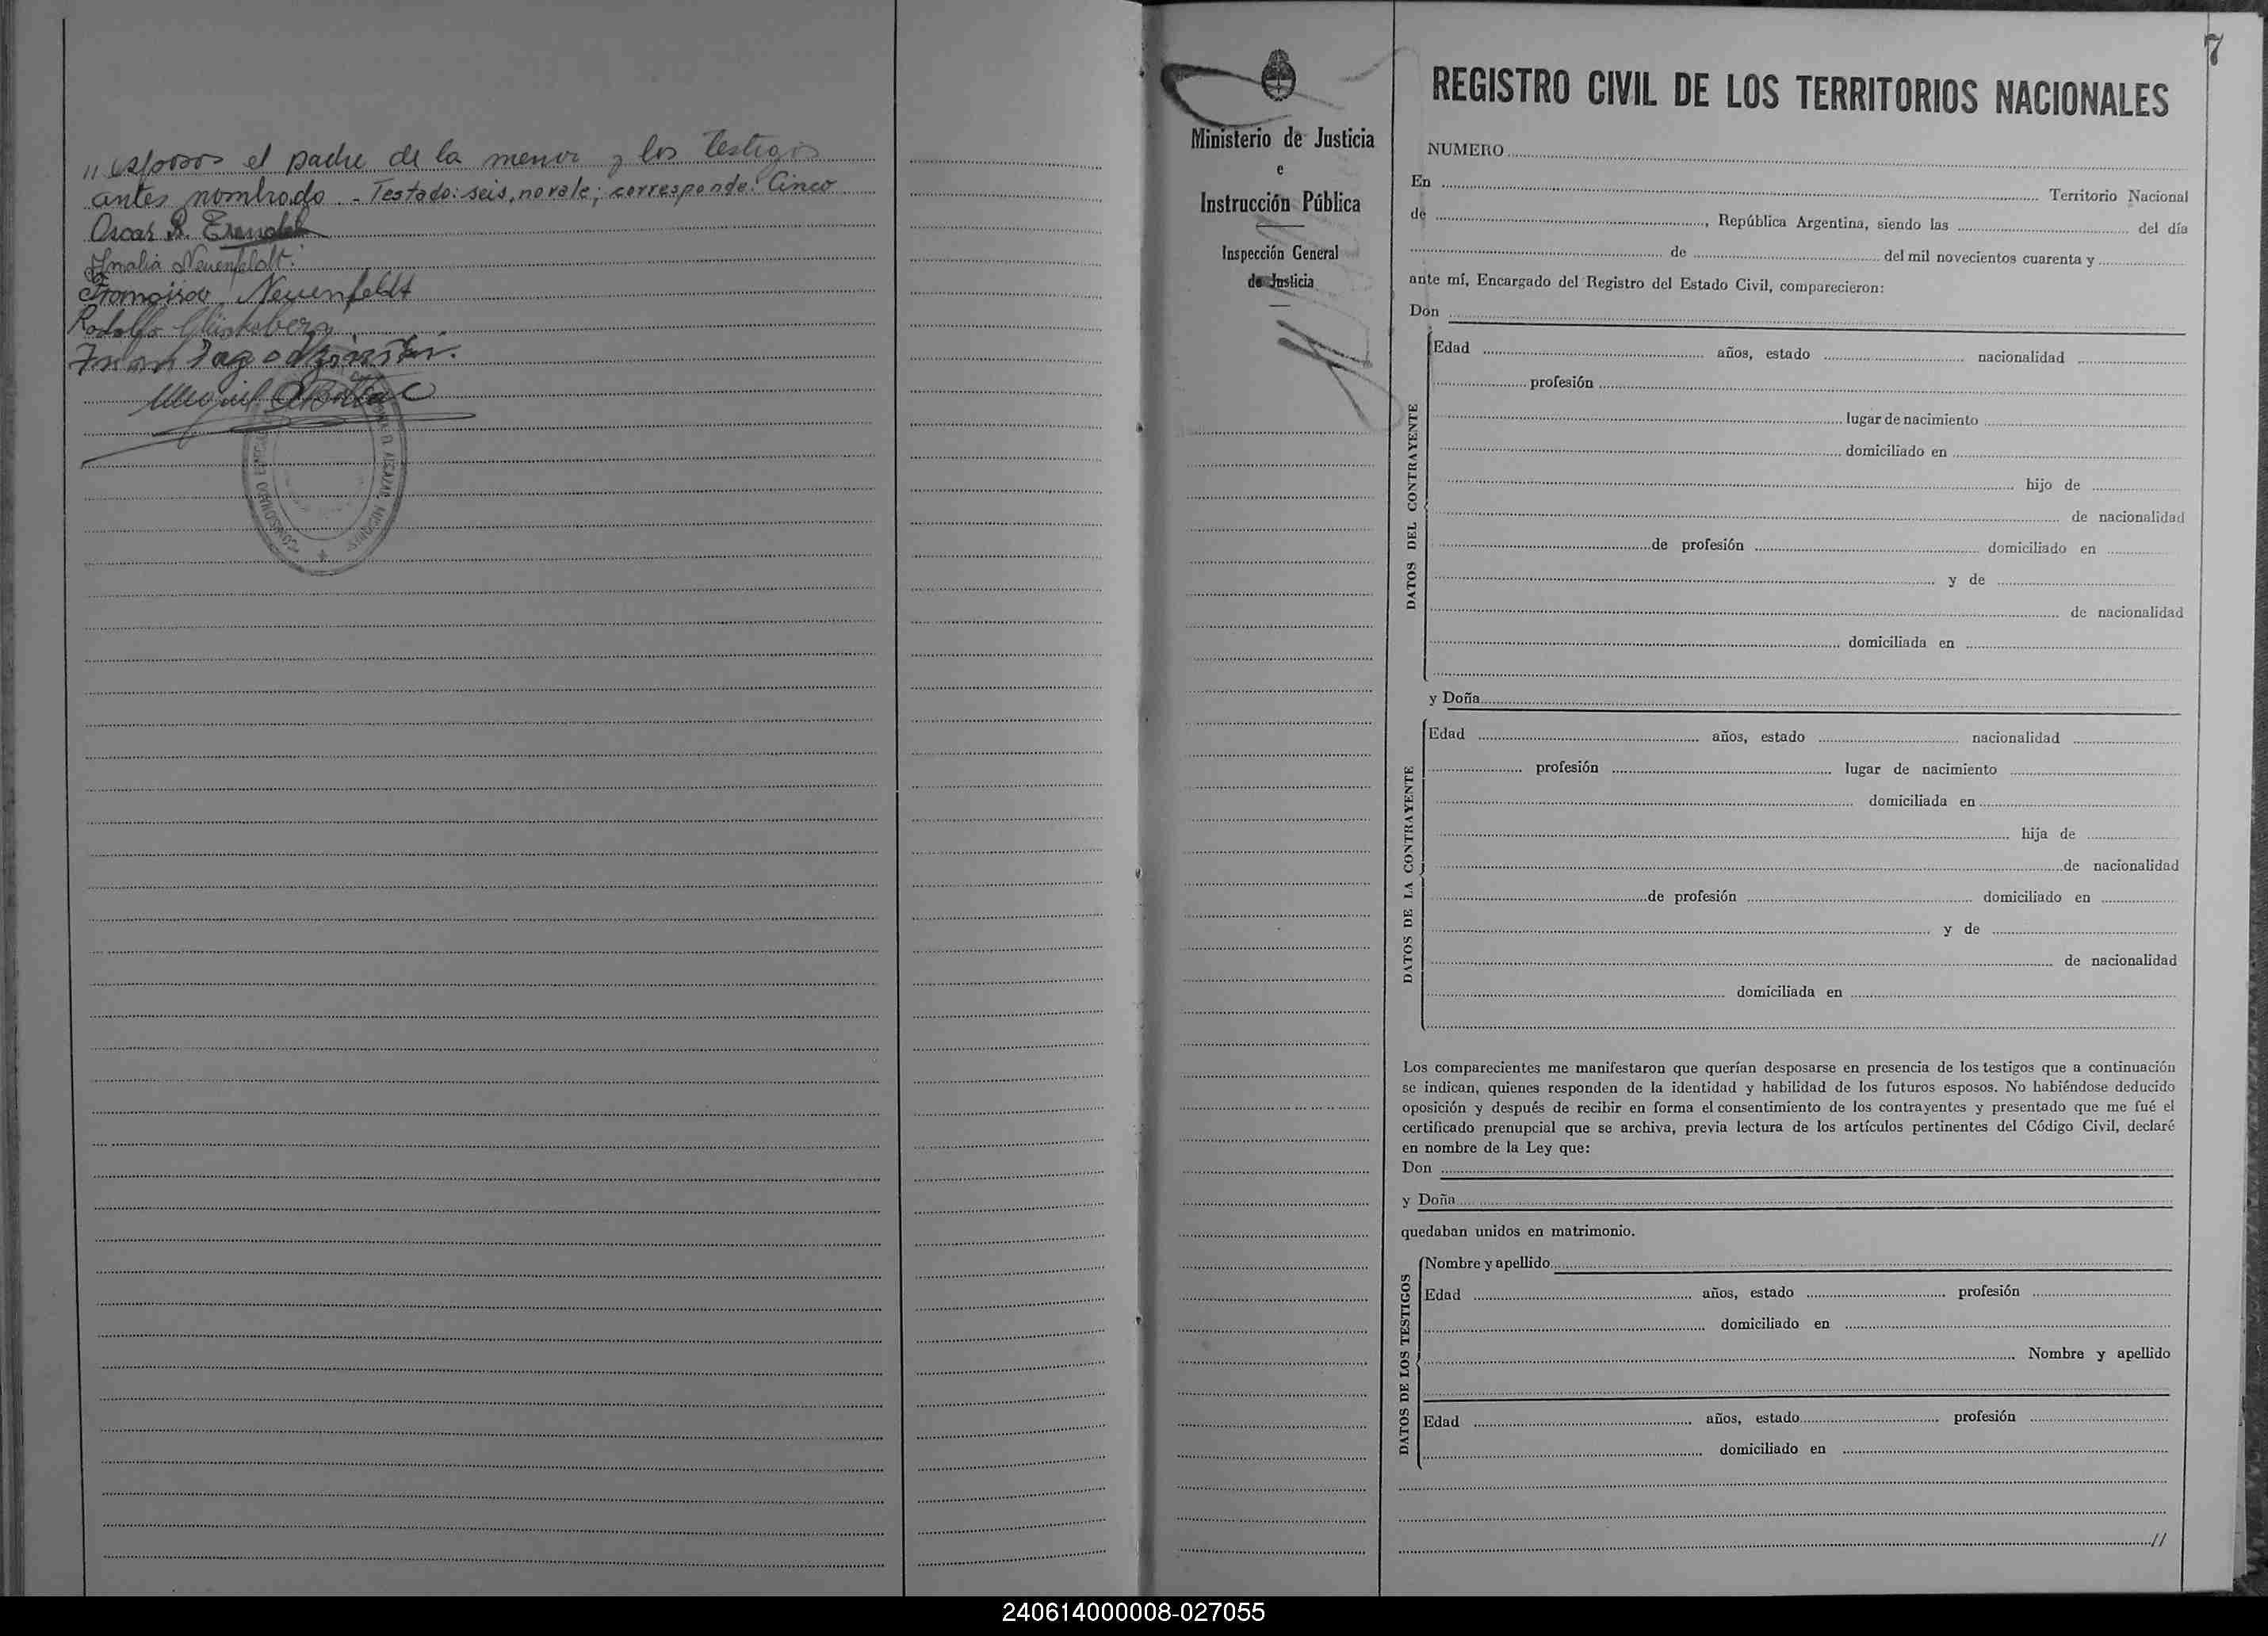 // esposos el padre de la menor y los testigos
antes nombrado. - Testado: seis, no vale; corresponde: Cinco
Oscar R.
Amalia Neuenfeldt.
Francisco Neuenfeldt
Rodolfo
Juan
Miguel
ALCAZAR MISIONES
7
Ministerio de Justicia
e
Instrucción Pública
Inspección General
de Justicia
REGISTRO CIVIL DE LOS TERRITORIOS NACIONALES
NUMERO
En Territorio Nacional
de , República Argentina, siendo las del día
de del mil novecientos cuarenta y
ante mí, Encargado del Registro del Estado Civil, comparecieron:
Don
DATOS DEL CONTRAYENTE
Edad años, estado nacionalidad
profesión
lugar de nacimiento
domiciliado en
hijo de
de nacionalidad
de profesión domiciliado en
y de
de nacionalidad
domiciliada en
y Doña
DATOS DE LA CONTRAYENTE
Edad años, estado nacionalidad
profesión lugar de nacimiento
domiciliada en
hija de
de nacionalidad
de profesión domiciliado en
y de
de nacionalidad
domiciliada en
Los comparecientes me manifestaron que querían desposarse en presencia de los testigos que a continuación
se indican, quienes responden de la identidad y habilidad de los futuros esposos. No habiéndose deducido
oposición y después de recibir en forma el consentimiento de los contrayentes y presentado que me fué el
certificado prenupcial que se archiva, previa lectura de los artículos pertinentes del Código Civil, declaré
en nombre de la Ley que:
Don
y Doña
quedaban unidos en matrimonio.
DATOS DE LOS TESTIGOS
Nombre y apellido
Edad años, estado profesión
domiciliado en
Nombre y apellido
Edad años, estado profesión
domiciliado en
//
240614000008-027055